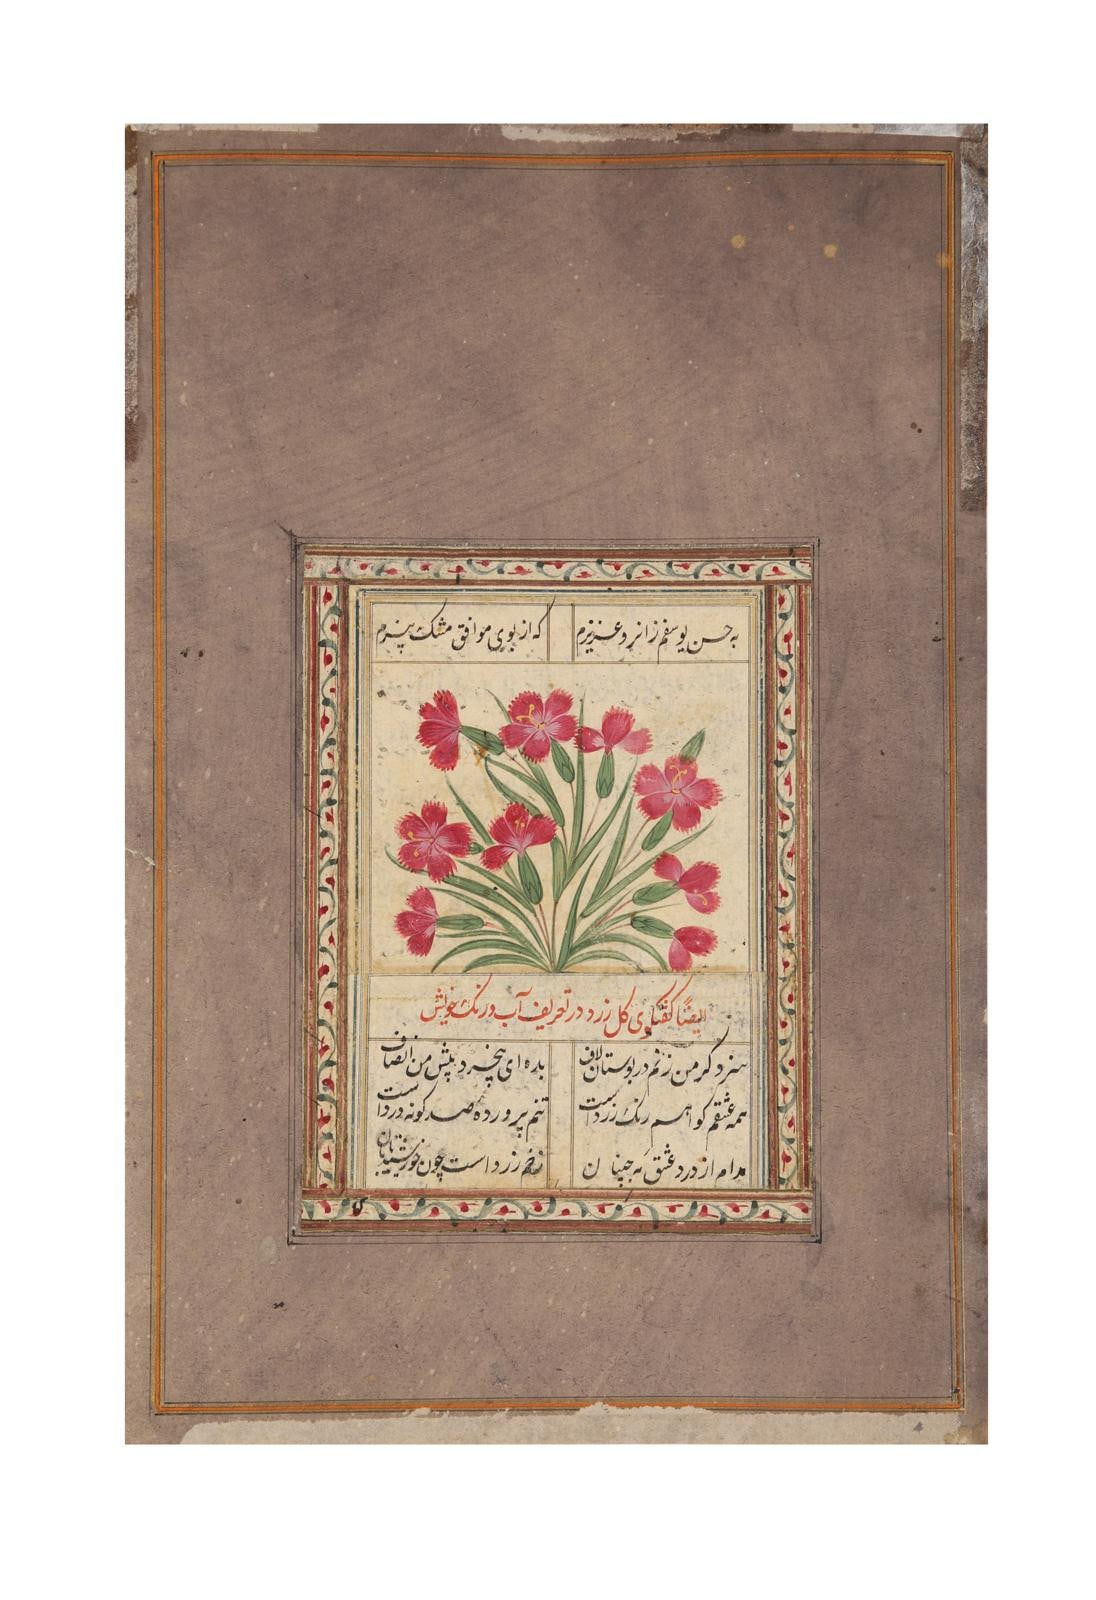 به حسن یوسفم زانرو عزیزم که از بوی موافق مشک بیزم
ایضا گفتگوی گل زرد در تعریف آب و رنگ خویش
سزد گر من زنم در بوستان لاف بده ای بیخرد پیش من انصاف
همه عشقم گواهم رنگ زردست تنم پرورده صد گونه درداست
مدام از درد عشق مه جبینان رخم زرد است چون خورشید تابان